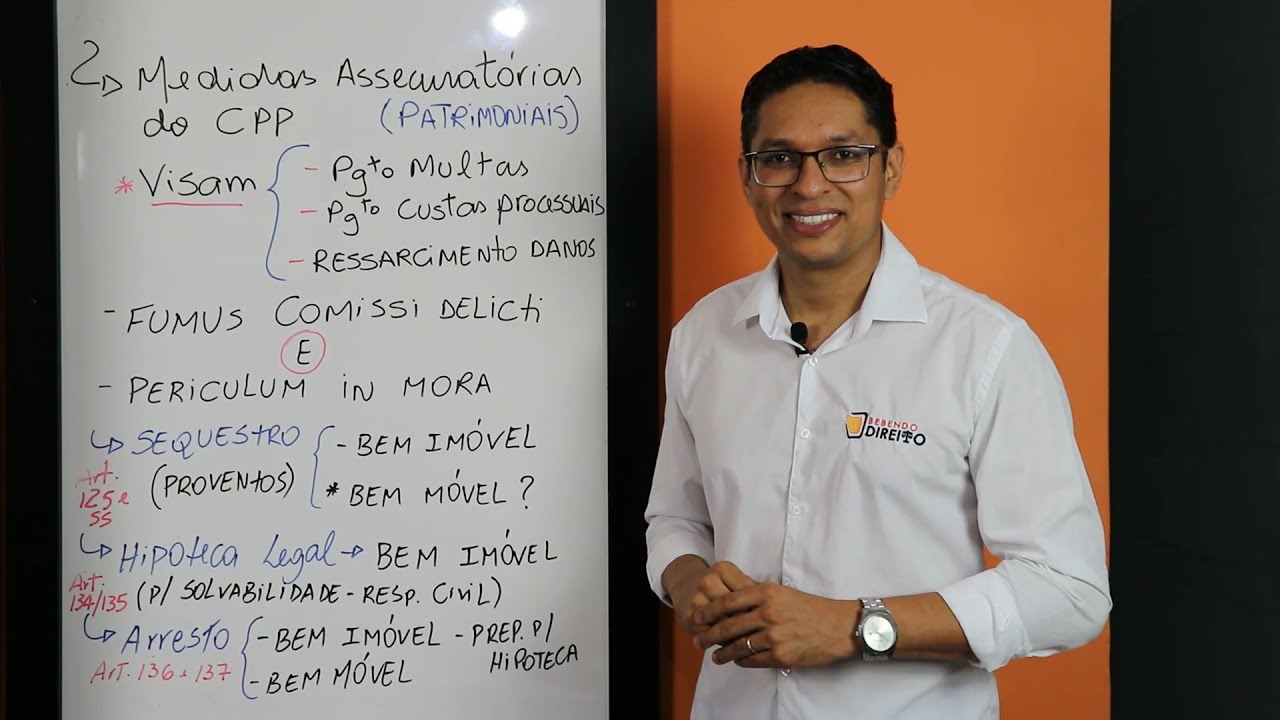 2 Medidas Assecuratórias
do CPP (PATRIMONIAIS)
* Visam
- Pgto Multas
- Pgto Custas processuais
- RESSARCIMENTO DANOS
- FUMUS COMISSI DELICTI
E
- PERICULUM IN MORA
↳ SEQUESTRO - BEM IMÓVEL
(PROVENTOS) * BEM MÓVEL ?
Art.
125 e
ss
↳ Hipoteca Legal → BEM IMÓVEL
Art.
134/135 (P/ SOLVABILIDADE - RESP. CIVIL)
↳ Arresto - BEM IMÓVEL - PREP. P/
HIPOTECA
Art. 136 e 137 - BEM MÓVEL
BEBENDO
DIREITO